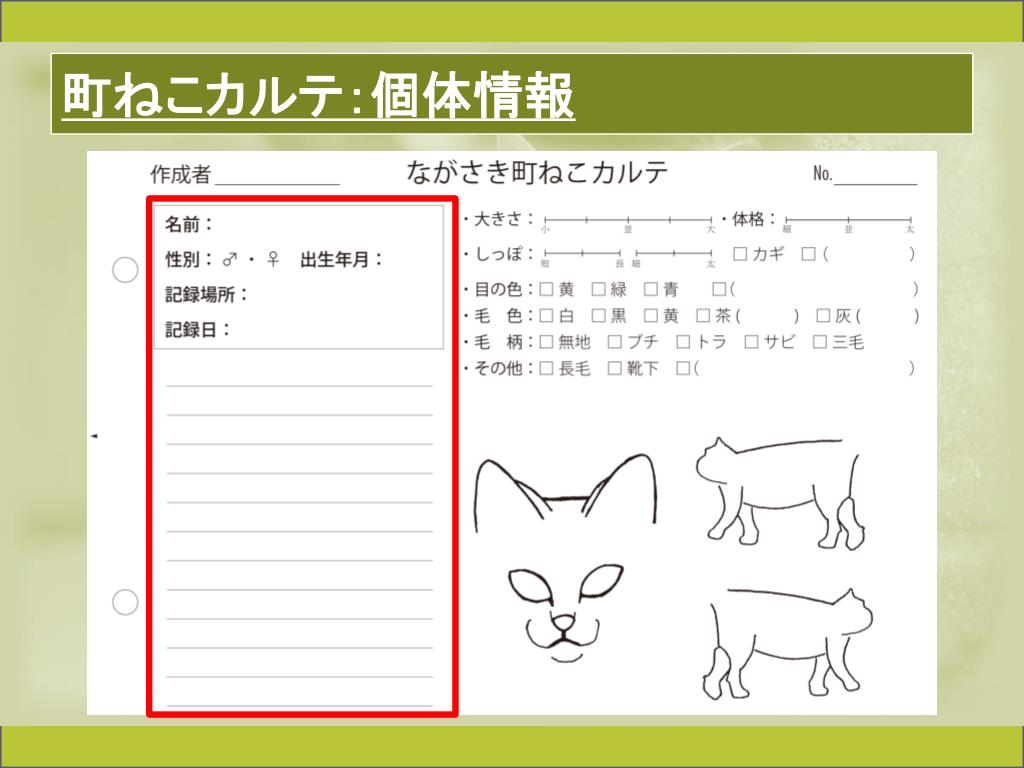 町ねこカルテ：個体情報
作成者 ながさき町ねこカルテ No.
名前：
性別：♂・♀ 出生年月：
記録場所：
記録日：
・大きさ： 小 並 大 ・体格： 細 並 太
・しっぽ： 短 長 細 太 □カギ □( )
・目の色：□黄 □緑 □青 □( )
・毛 色：□白 □黒 □黄 □茶( ) □灰( )
・毛 柄：□無地 □ブチ □トラ □サビ □三毛
・その他：□長毛 □靴下 □( )